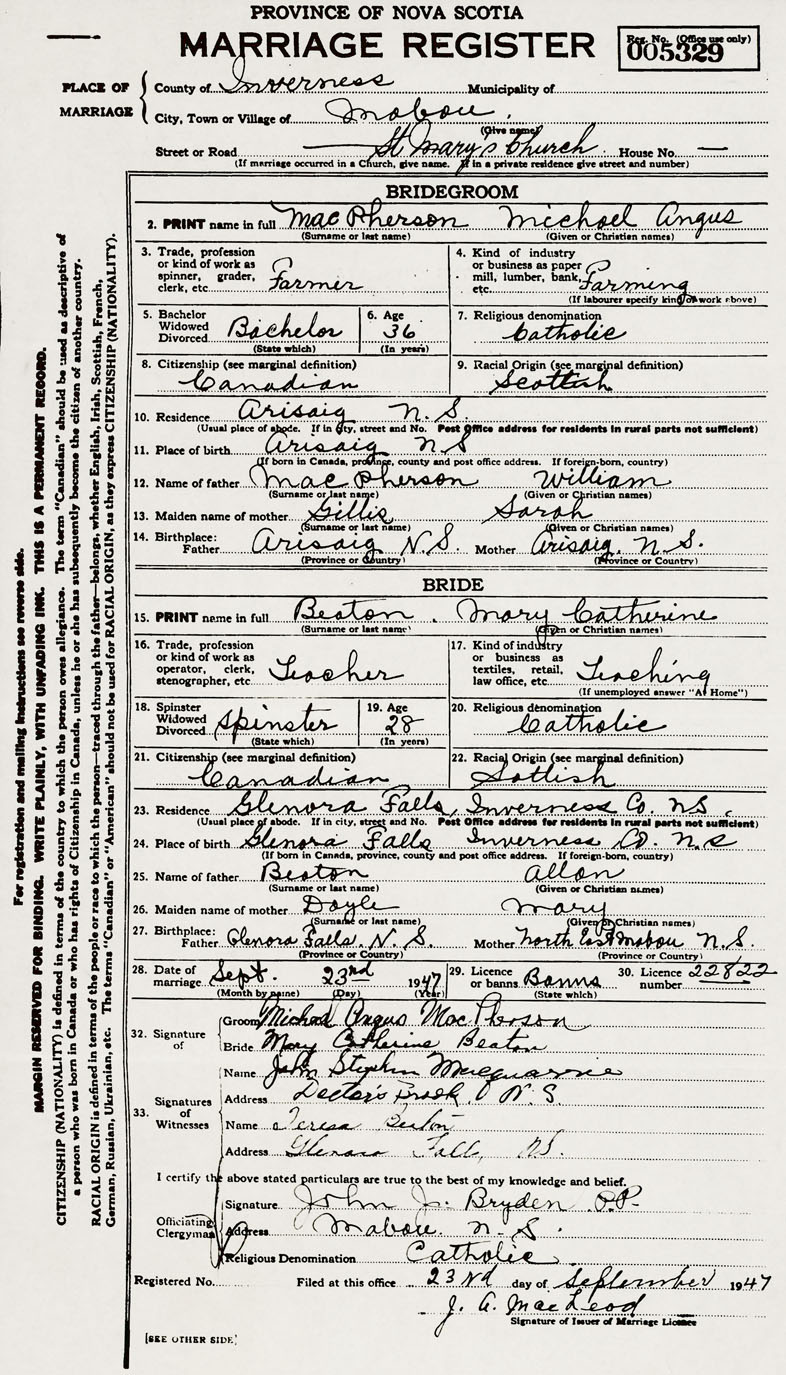 PROVINCE OF NOVA SCOTIA
MARRIAGE REGISTER
Reg. No. (Office use only)
005329
PLACE OF MARRIAGE
County of Inverness Municipality of
City, Town or Village of Mabou
(Give name)
Street or Road St Mary's Church House No. —
(If marriage occurred in a Church, give name. If in a private residence give street and number)
BRIDEGROOM
2. PRINT name in full MacPherson Michael Angus
(Surname or last name) (Given or Christian names)
3. Trade, profession or kind of work as spinner, grader, clerk, etc. Farmer
4. Kind of industry or business as paper mill, lumber, bank, etc. Farming
(If labourer specify kind of work above)
5. Bachelor Widowed Divorced Bachelor
(State which)
6. Age 36
(In years)
7. Religious denomination
Catholic
8. Citizenship (see marginal definition)
Canadian
9. Racial Origin (see marginal definition)
Scottish
10. Residence Arisaig N.S.
(Usual place of abode. If in city, street and No. Post Office address for residents in rural parts not sufficient)
11. Place of birth Arisaig N S
(If born in Canada, province, county and post office address. If foreign-born, country)
12. Name of father MacPherson William
(Surname or last name) (Given or Christian names)
13. Maiden name of mother Gillis Sarah
(Surname or last name) (Given or Christian names)
14. Birthplace: Father Arisaig N.S. Mother Arisaig, N.S.
(Province or Country) (Province or Country)
BRIDE
15. PRINT name in full Beaton. Mary Catherine
(Surname or last name) (Given or Christian names)
16. Trade, profession or kind of work as operator, clerk, stenographer, etc. Teacher
17. Kind of industry or business as textiles, retail, law office, etc. Teaching
(If unemployed answer "At Home")
18. Spinster Widowed Divorced Spinster
(State which)
19. Age 28
(In years)
20. Religious denomination
Catholic
21. Citizenship (see marginal definition)
Canadian
22. Racial Origin (see marginal definition)
Sottish
23. Residence Glenora Falls, Inverness Co. NS.
(Usual place of abode. If in city, street and No. Post Office address for residents in rural parts not sufficient)
24. Place of birth Glenora Falls Inverness Co. N.S
(If born in Canada, province, county and post office address. If foreign-born, country)
25. Name of father Beaton Allan
(Surname or last name) (Given or Christian names)
26. Maiden name of mother Doyle Mary
(Surname or last name) (Given or Christian names)
27. Birthplace: Father Glenora Falls. N. S. Mother North East Mabou N.S.
(Province or Country) (Province or Country)
28. Date of marriage Sept. 23rd 1947
(Month by name) (Day) (Year)
29. Licence or banns Banns
(State which)
30. Licence number 22822
32. Signature of
Groom Michael Angus MacPherson
Bride Mary Catherine Beaton
33. Signatures of Witnesses
Name John Stephen Macquarrie
Address Doctor's Brook N.S.
Name Teresa Beaton
Address Glenora Falls, NS.
I certify the above stated particulars are true to the best of my knowledge and belief.
Officiating Clergyman
Signature John J. Bryden P.P.
Address Mabou. N.S.
Religious Denomination Catholic
Registered No. Filed at this office 23rd day of September 1947
J. A. MacLeod
Signature of Issuer of Marriage License
[SEE OTHER SIDE]
For registration and mailing instructions see reverse side.
MARGIN RESERVED FOR BINDING. WRITE PLAINLY, WITH UNFADING INK. THIS IS A PERMANENT RECORD.
CITIZENSHIP (NATIONALITY) is defined in terms of the country to which the person owes allegiance. The term "Canadian" should be used as descriptive of
a person who was born in Canada or who has rights of Citizenship in Canada, unless he or she has subsequently become the citizen of another country.
RACIAL ORIGIN is defined in terms of the people or race to which the person—traced through the father—belongs, whether English, Irish, Scottish, French,
German, Russian, Ukrainian, etc. The terms "Canadian" or "American" should not be used for RACIAL ORIGIN, as they express CITIZENSHIP (NATIONALITY).